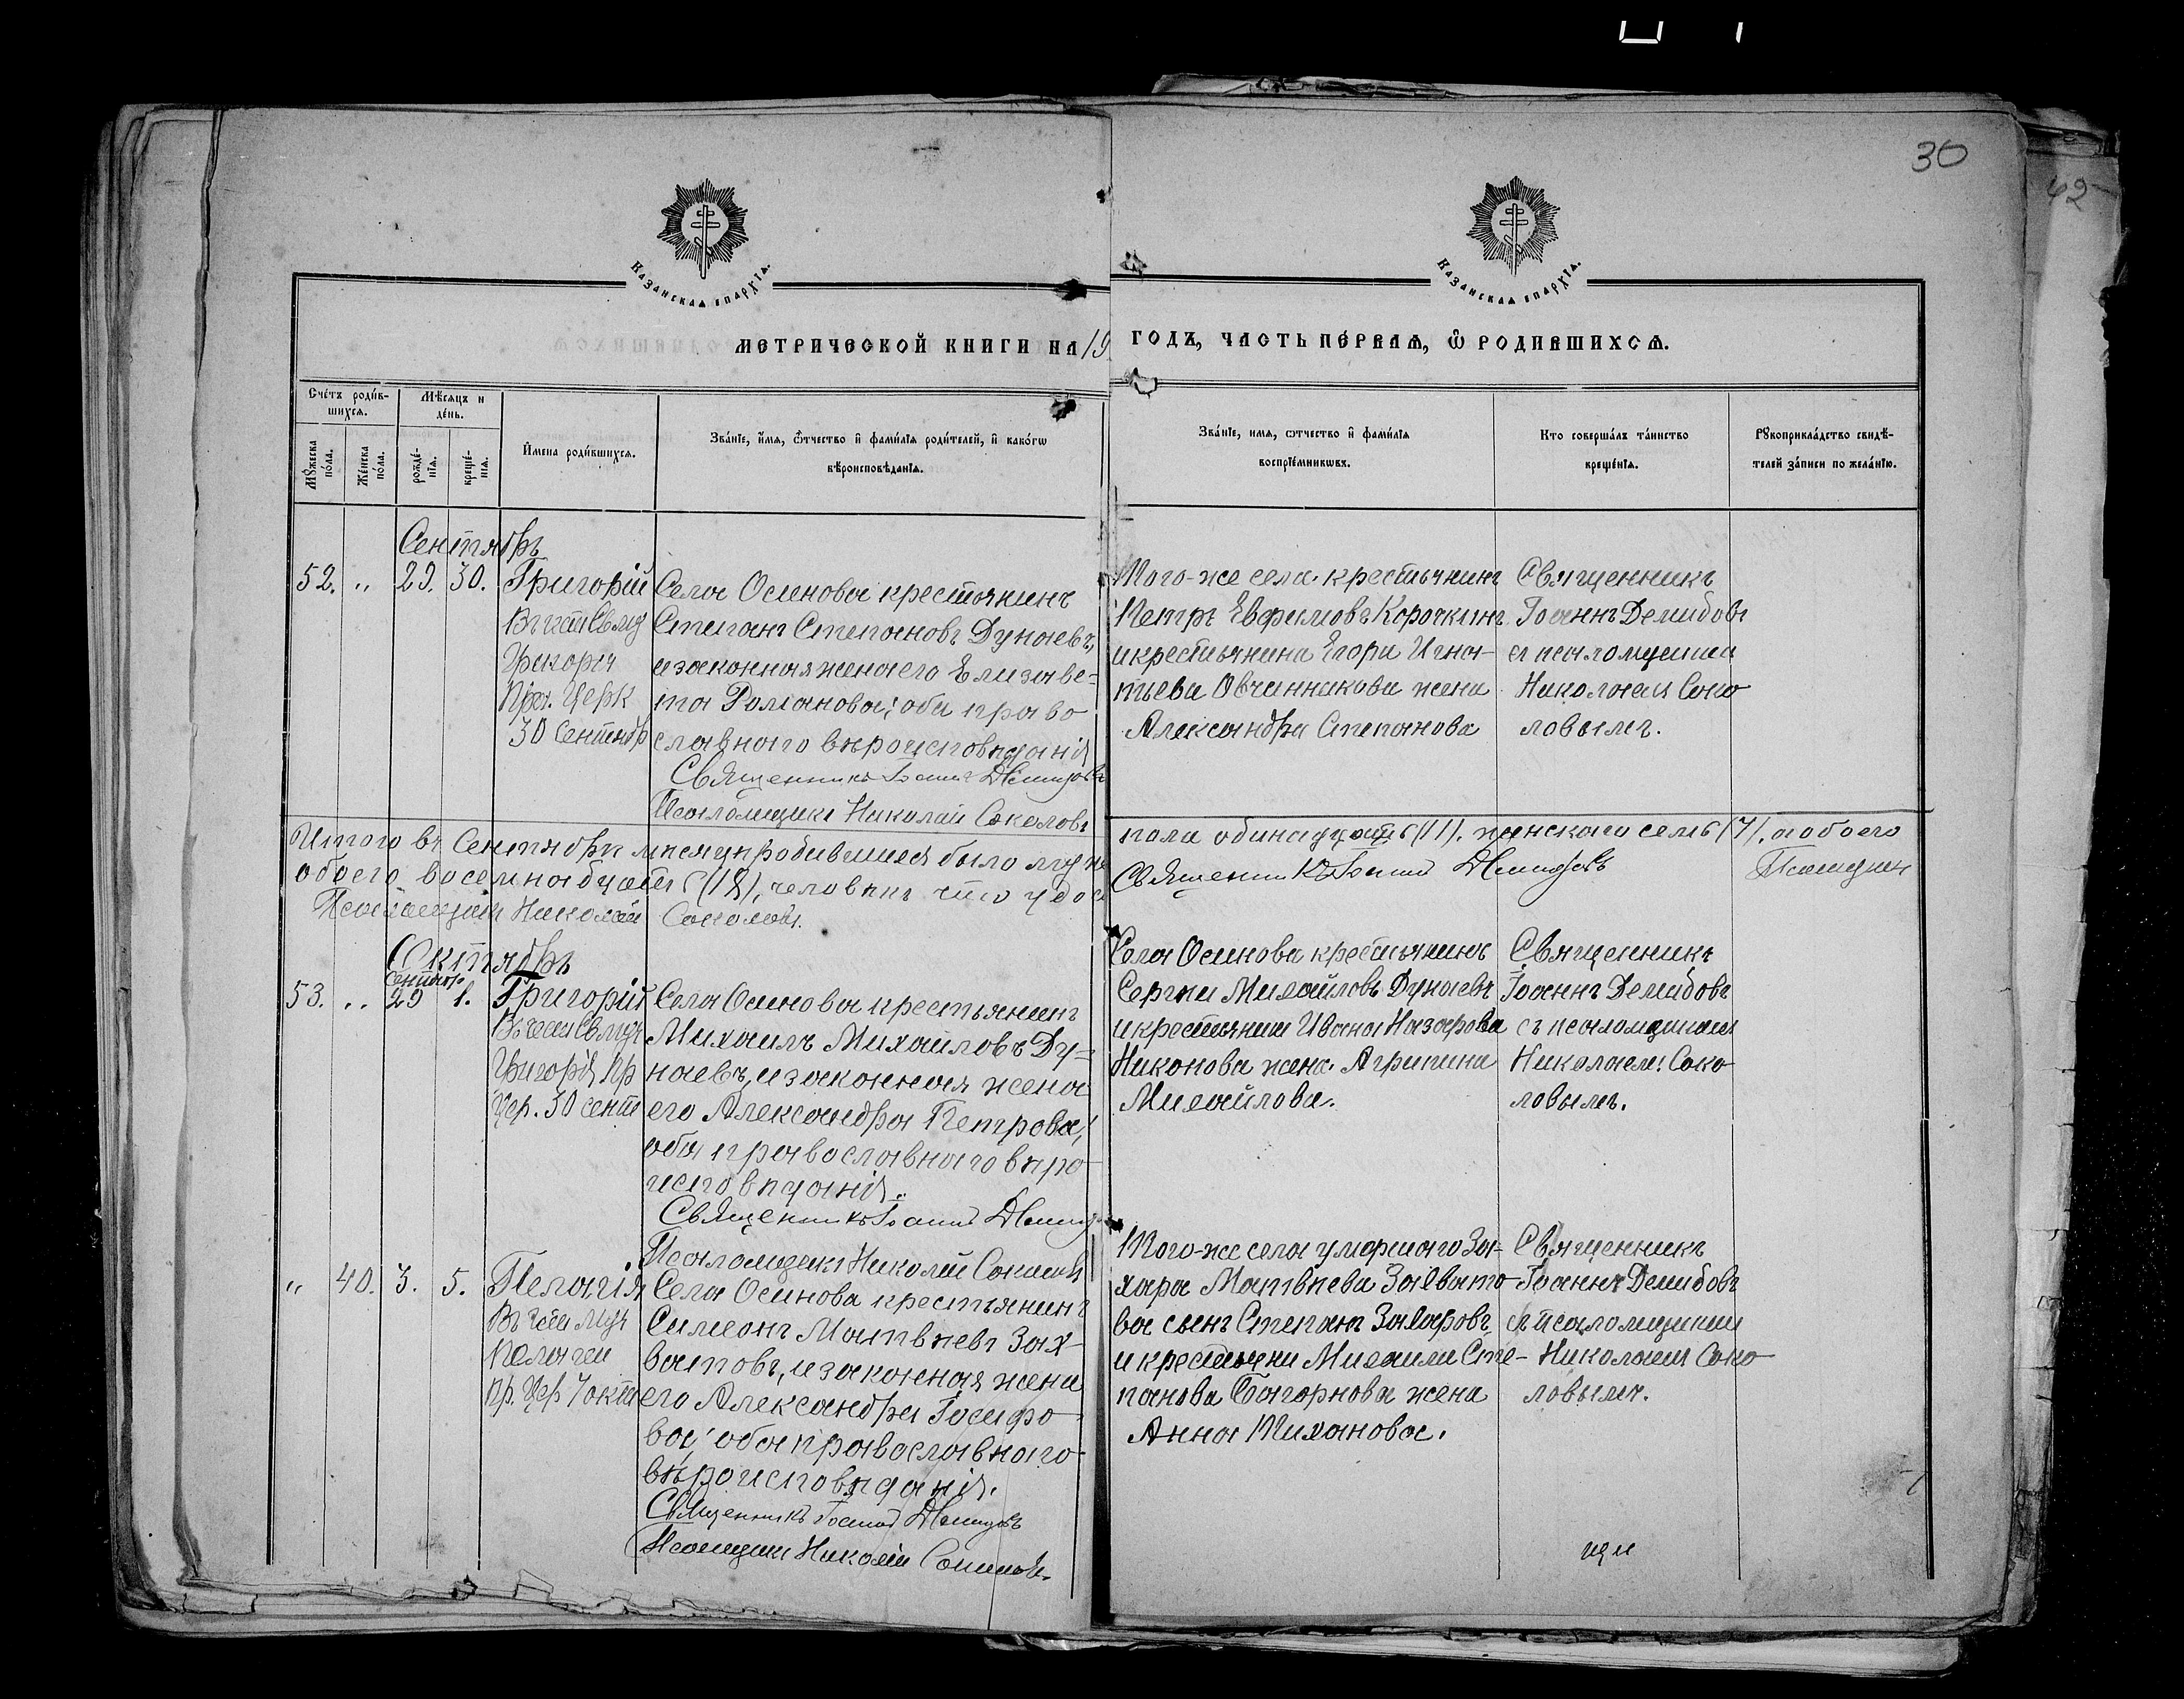 30
42
Казанская епархія.
Казанская епархія.
Метрической книги на 19
годъ, часть первая, ѿ родившихся.
Счетъ родив-
шихся.
Мѣсяцъ и
день.
Мужеска
пола.
Женска
пола.
рожде-
нія.
креще-
нія.
Имена родившихся.
Званіе, имя, отчество и фамилія родителей, и какогѡ
вѣроисповѣданія.
Званіе, имя, отчество и фамилія
воспріемникѡвъ.
Кто совершалъ таинство
крещенія.
Рукоприкладство свидѣ-
телей записи по желанію.
Сентябрь
52. " 29. 30. Григорій
Григорія
Пра. Церк
30 Сентябр
Села Осинова крестьянинъ
Степанъ Степановъ Дунаевъ,
и законная жена его Елизаве-
та Романова; оба право
славнаго вѣроисповѣданія
Священникъ Іоаннъ Демидовъ
Псаломщикъ Николай Соколовъ
Того-же села крестьянинъ
Петръ Евфимовъ Корочкинъ
и крестьянина Егора Игна-
тьева Овчинникова жена
Александра Степанова
Священникъ
Іоаннъ Демидовъ
съ псаломщикомъ
Николаемъ Соко
ловымъ.
Итого въ Сентябрѣ мѣсяцѣ родившихся было муже
пола одинадцать (11), женскаго семь (7), а обоего
обоего восемнадцать (18), человѣкъ что удос
Священникъ Іоаннъ Демидовъ
Псаломщикъ Николай Соколовъ.
Октябрь
Сентяб.
53. " 29 1. Григорій
Григорія Пр
Цер. 30 сент
Села Осинова крестьянинъ
Михаилъ Михайловъ Ду-
наевъ, и законная жена
его Александра Петрова,
оба православнаго вѣро-
исповѣданія.
Священникъ Іоаннъ Демид
Псаломщикъ Николай Соколовъ
Села Осинова крестьянинъ
Сергѣй Михайловъ Дунаевъ
и крестьянина Ивана Назарова
Никонова жена Агрипина
Михайлова.
Священникъ
Іоаннъ Демидовъ
съ псаломщикомъ
Николаемъ Соко-
ловымъ.
" 40. 3. 5. Пелагія
Въ чест Муч
Пелагеи
Пр. Цер 7 окт
Села Осинова крестьянинъ
Симеонъ Матвѣевъ Зах-
ватовъ, и законная жена
его Александра Іосифо-
ва; оба православнаго
вѣроисповѣданія.
Священникъ Іоаннъ Демидовъ
Псаломщикъ Николай Соколовъ.
Того-же села умершаго За-
хара Матвѣева Захвато-
ва сынъ Степанъ Захаровъ,
и крестьяни Михаила Сте-
панова жена
Анна Тиханова.
Священникъ
Іоаннъ Демидовъ
съ псаломщикомъ
Николаемъ Соко
ловымъ.